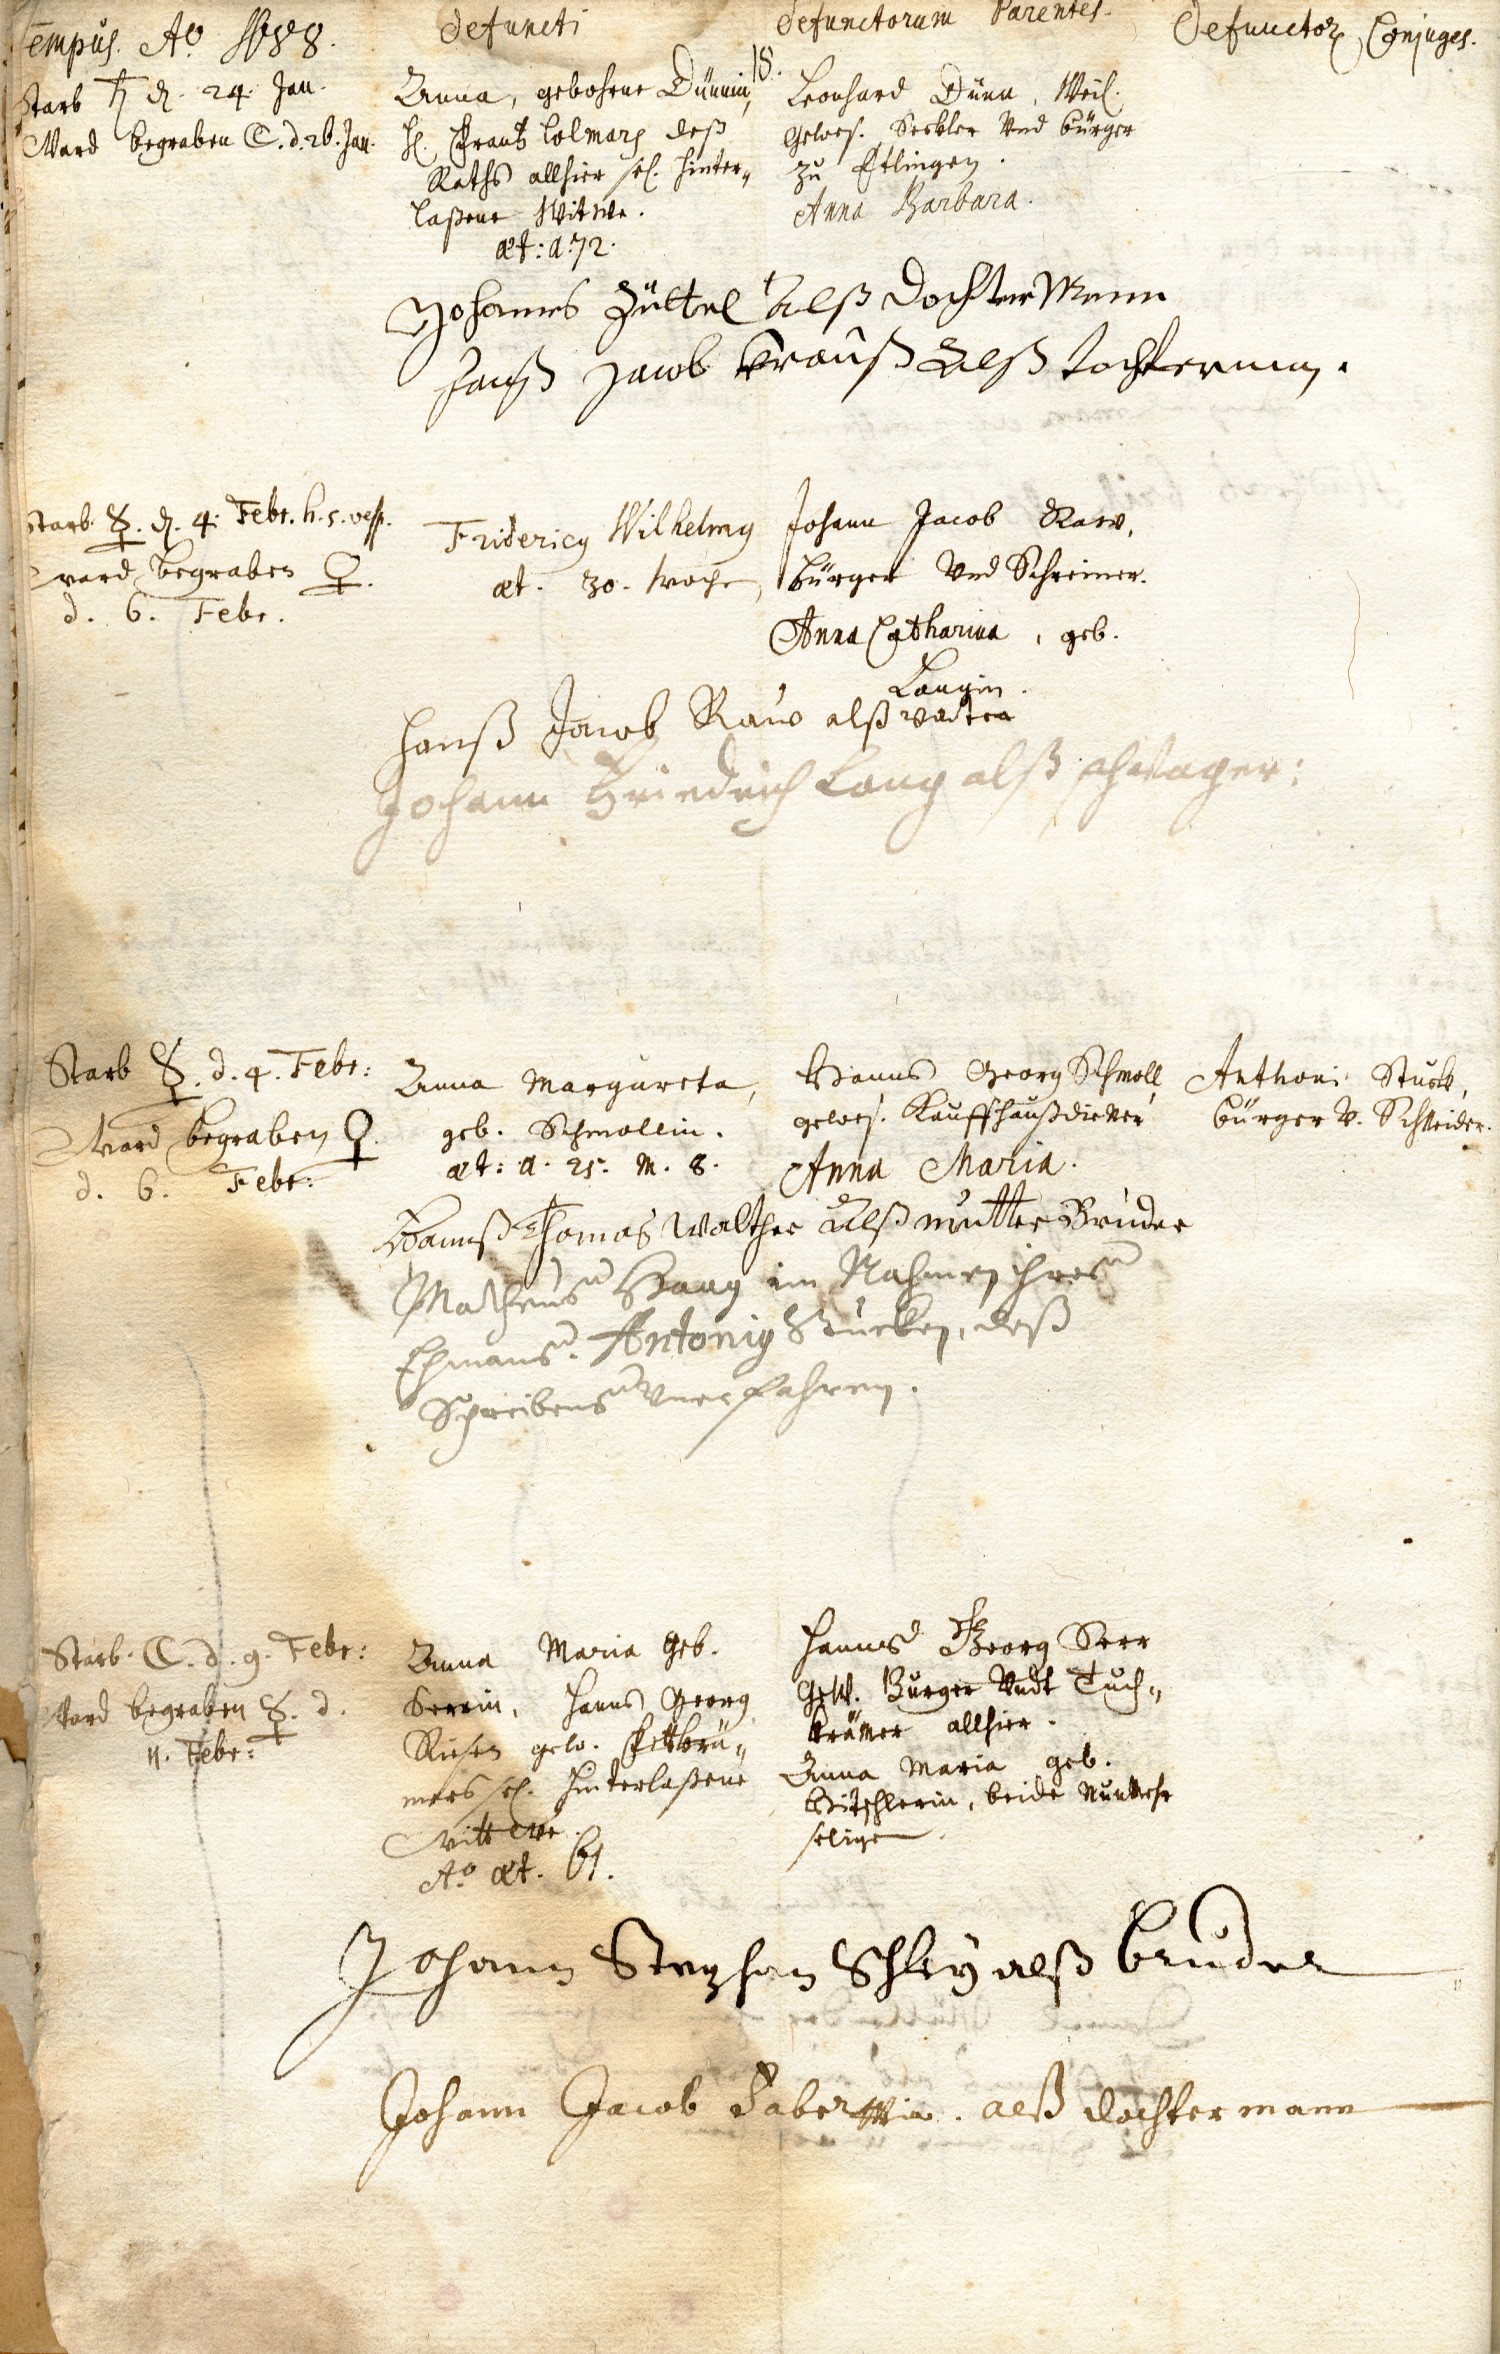 Tempus. Ao 1688.
defuncti
defunctorum Parentes.
Defunctor. Conjuges.
18.
Starb ♄ d. 24. Jan.
Ward begraben ☾. d. 26. Jan.
Anna, gebohrne Dünnin,
H. Frantz Colmars deß
Raths allhier sel. hinter„
laßene Witwe.
æt: a. 72.
Leonhard Dünn, Weil.
gewes. Seckler Und bürger
zu Etlingen.
Anna Barbara.
Johannes Züttel Alß dochter Mann
Hanß Jacob Krauß Alß tochterman.
Starb ☿. d. 4. Febr. h. 5. vesp.
ward begraben ♀.
d. 6. Febr.
Fridericus Wilhelmus
æt. 30. woche,
Johann Jacob Raw,
bürger Und Schreiner.
Anna Catharina, geb.
Langin.
Hanß Jacob Rauw alß vatter
Johann Friedrich Lang alß schwager:
Starb ☿. d. 4. Febr:
Ward begraben ♀.
d. 6. Febr:
Anna Margareta,
geb. Schmollin.
æt: a. 25. M. 8.
Hanns Georg Schmoll
gewes. Kauffhaußdiener
Anna Maria.
Anthoni Stuck,
bürger V. Schneider.
Hannß Thomas Walther Alß mutter Bruder
Matheus Haag im Nahmen ihres
Ehmans. Antonij Stucken, deß
Schreibens Unerfahren.
Starb. ☾. d. 9. Febr:
Ward begraben ☿. d.
11. Febr:
Anna Maria Geb.
Serrin, Hanns Georg
Riesen gew. Fettkrä„
mers sel. hinterlaßene
Wittwe.
Ao. æt. 61.
Hanns Georg Serr
Gew. Burger Undt Tuch„
krämer allhier.
Anna Maria geb.
Bitschlerin, beide Nunmehr
selige
Johann Stephan Schley alß bruder
Johann Jacob Faber alß dochtermann